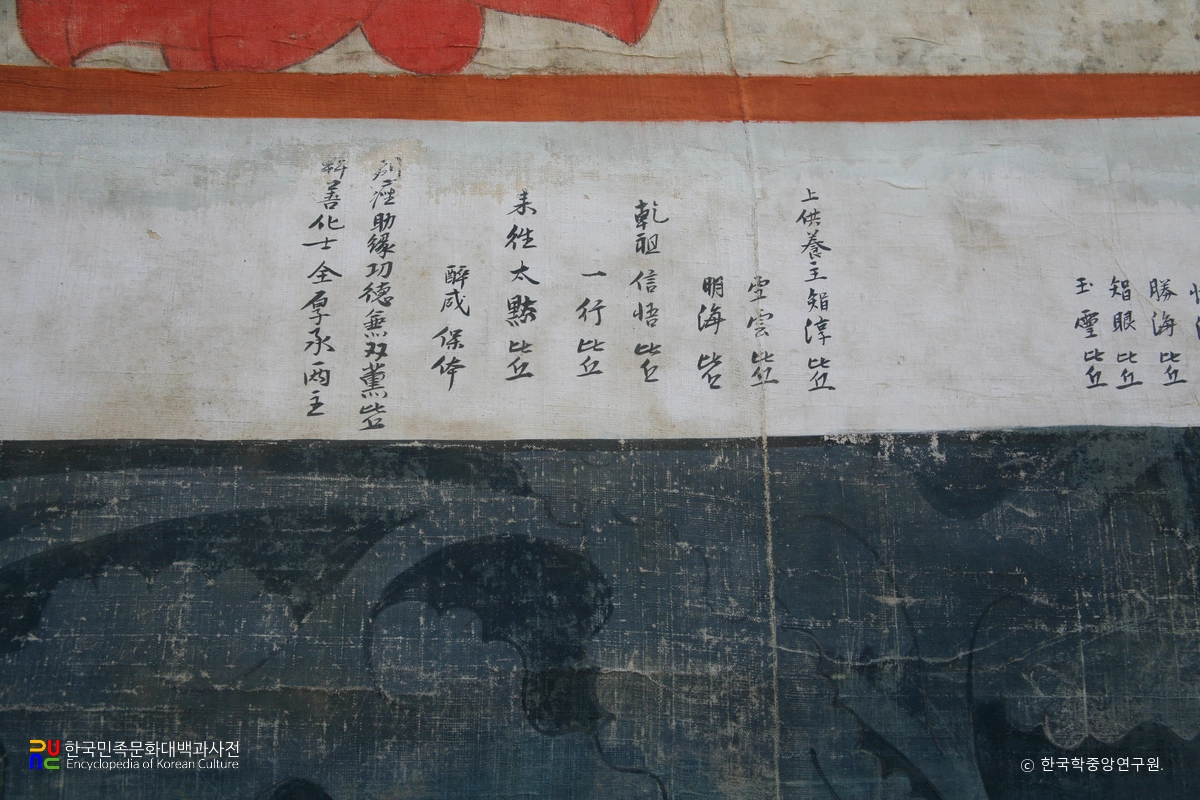 勝海比丘
智眼比丘
玉靈比丘
上供養主智淳比丘
雪雲比丘
明海比丘
乾祖信悟比丘
一行比丘
來往太點比丘
醉咸保体
助緣功德無双薰比丘
善化士全厚承両主
한국민족문화대백과사전
Encyclopedia of Korean Culture
© 한국학중앙연구원.